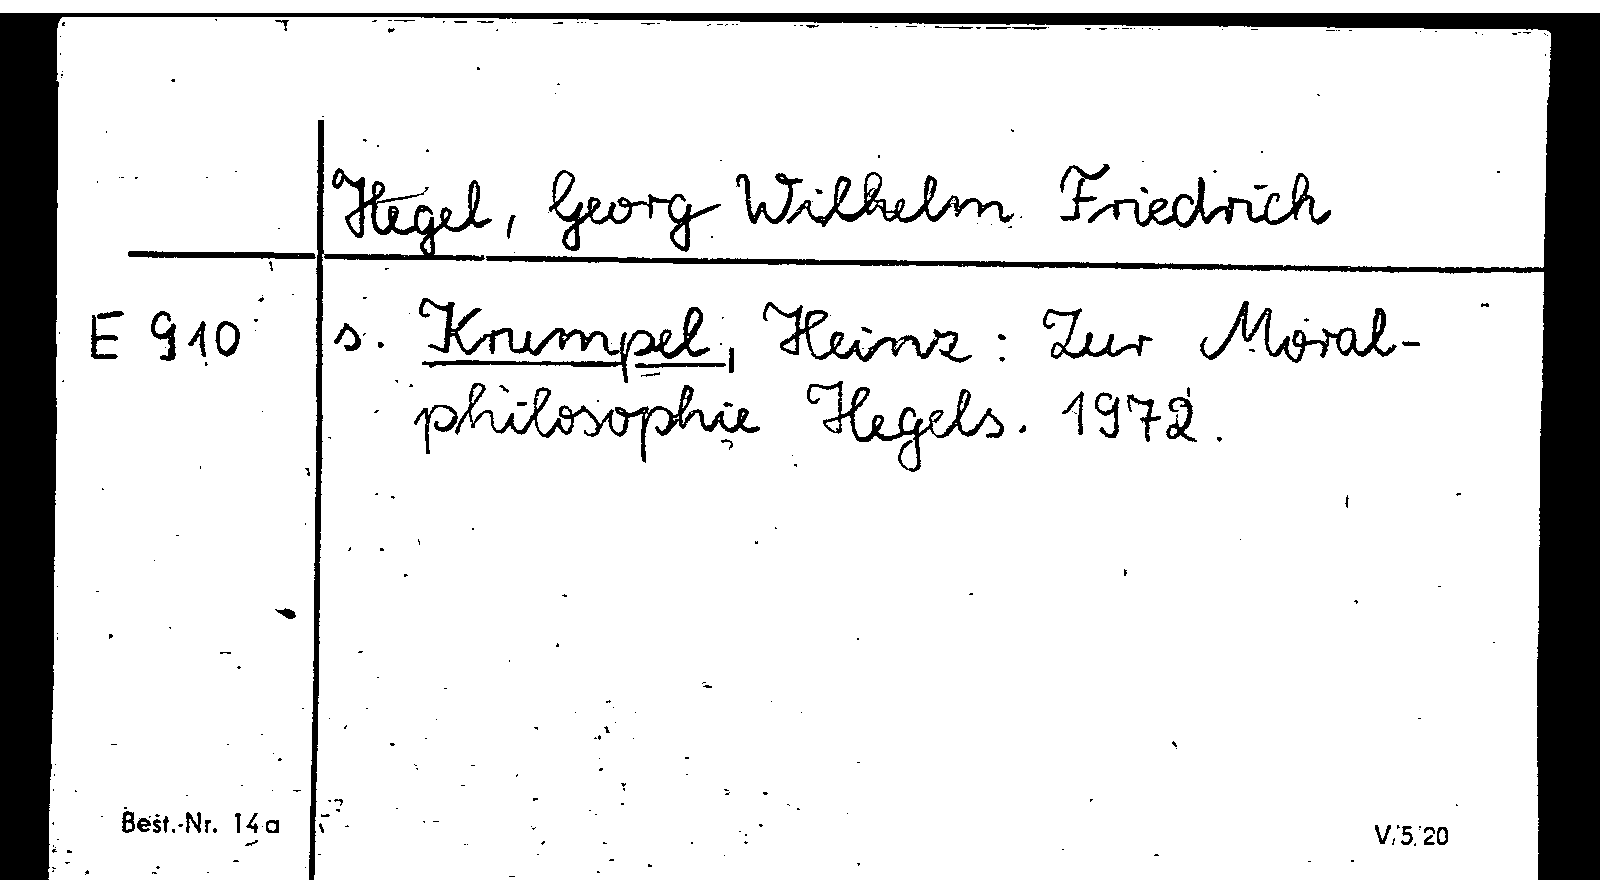 Hegel, Georg Wilhelm Friedrich
E 910 s. Krumpel, Heinz: Zur Moral-
philosophie Hegels. 1972.
Best.-Nr. 14a V/5/20